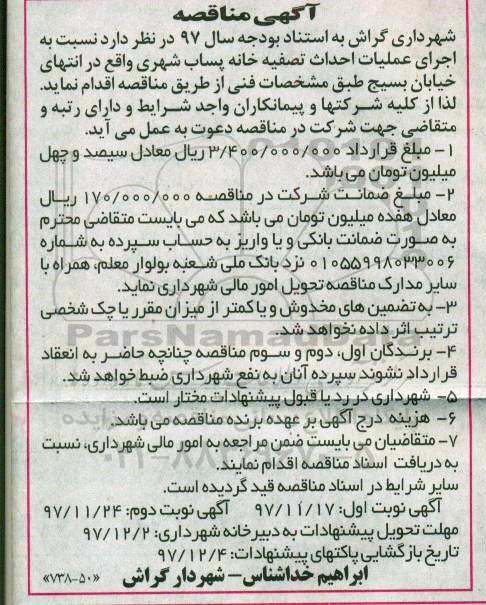 آگهی مناقصه
شهرداری گراش به استناد بودجه سال ۹۷ در نظر دارد نسبت به
اجرای عملیات احداث تصفیه خانه پساب شهری واقع در انتهای
خیابان بسیج طبق مشخصات فنی از طریق مناقصه اقدام نماید.
لذا از کلیه شرکتها و پیمانکاران واجد شرایط و دارای رتبه و
متقاضی جهت شرکت در مناقصه دعوت به عمل می آید.
۱- مبلغ قرارداد ۳/۴۰۰/۰۰۰/۰۰۰ ریال معادل سیصد و چهل
میلیون تومان می باشد.
۲- مبلغ ضمانت شرکت در مناقصه ۱۷۰/۰۰۰/۰۰۰ ریال
معادل هفده میلیون تومان می باشد که می بایست متقاضی محترم
به صورت ضمانت بانکی و یا واریز به حساب سپرده به شماره
۰۱۰۵۵۹۹۸۰۳۳۰۰۶ نزد بانک ملی شعبه بولوار معلم، همراه با
سایر مدارک مناقصه تحویل امور مالی شهرداری نماید.
۳- به تضمین های مخدوش و یا کمتر از میزان مقرر یا چک شخصی
ترتیب اثر داده نخواهد شد.
۴- برندگان اول، دوم و سوم مناقصه چنانچه حاضر به انعقاد
قرارداد نشوند سپرده آنان به نفع شهرداری ضبط خواهد شد.
۵- شهرداری در رد یا قبول پیشنهادات مختار است.
۶- هزینه درج آگهی بر عهده برنده مناقصه می باشد.
۷- متقاضیان می بایست ضمن مراجعه به امور مالی شهرداری، نسبت
به دریافت اسناد مناقصه اقدام نمایند.
سایر شرایط در اسناد مناقصه قید گردیده است.
آگهی نوبت اول: ۹۷/۱۱/۱۷ آگهی نوبت دوم: ۹۷/۱۱/۲۴
مهلت تحویل پیشنهادات به دبیرخانه شهرداری: ۹۷/۱۲/۲
تاریخ بازگشایی پاکتهای پیشنهادات: ۹۷/۱۲/۴
ابراهیم خداشناس- شهردار گراش «۷۳۸-۵۰»
ParsNamadData